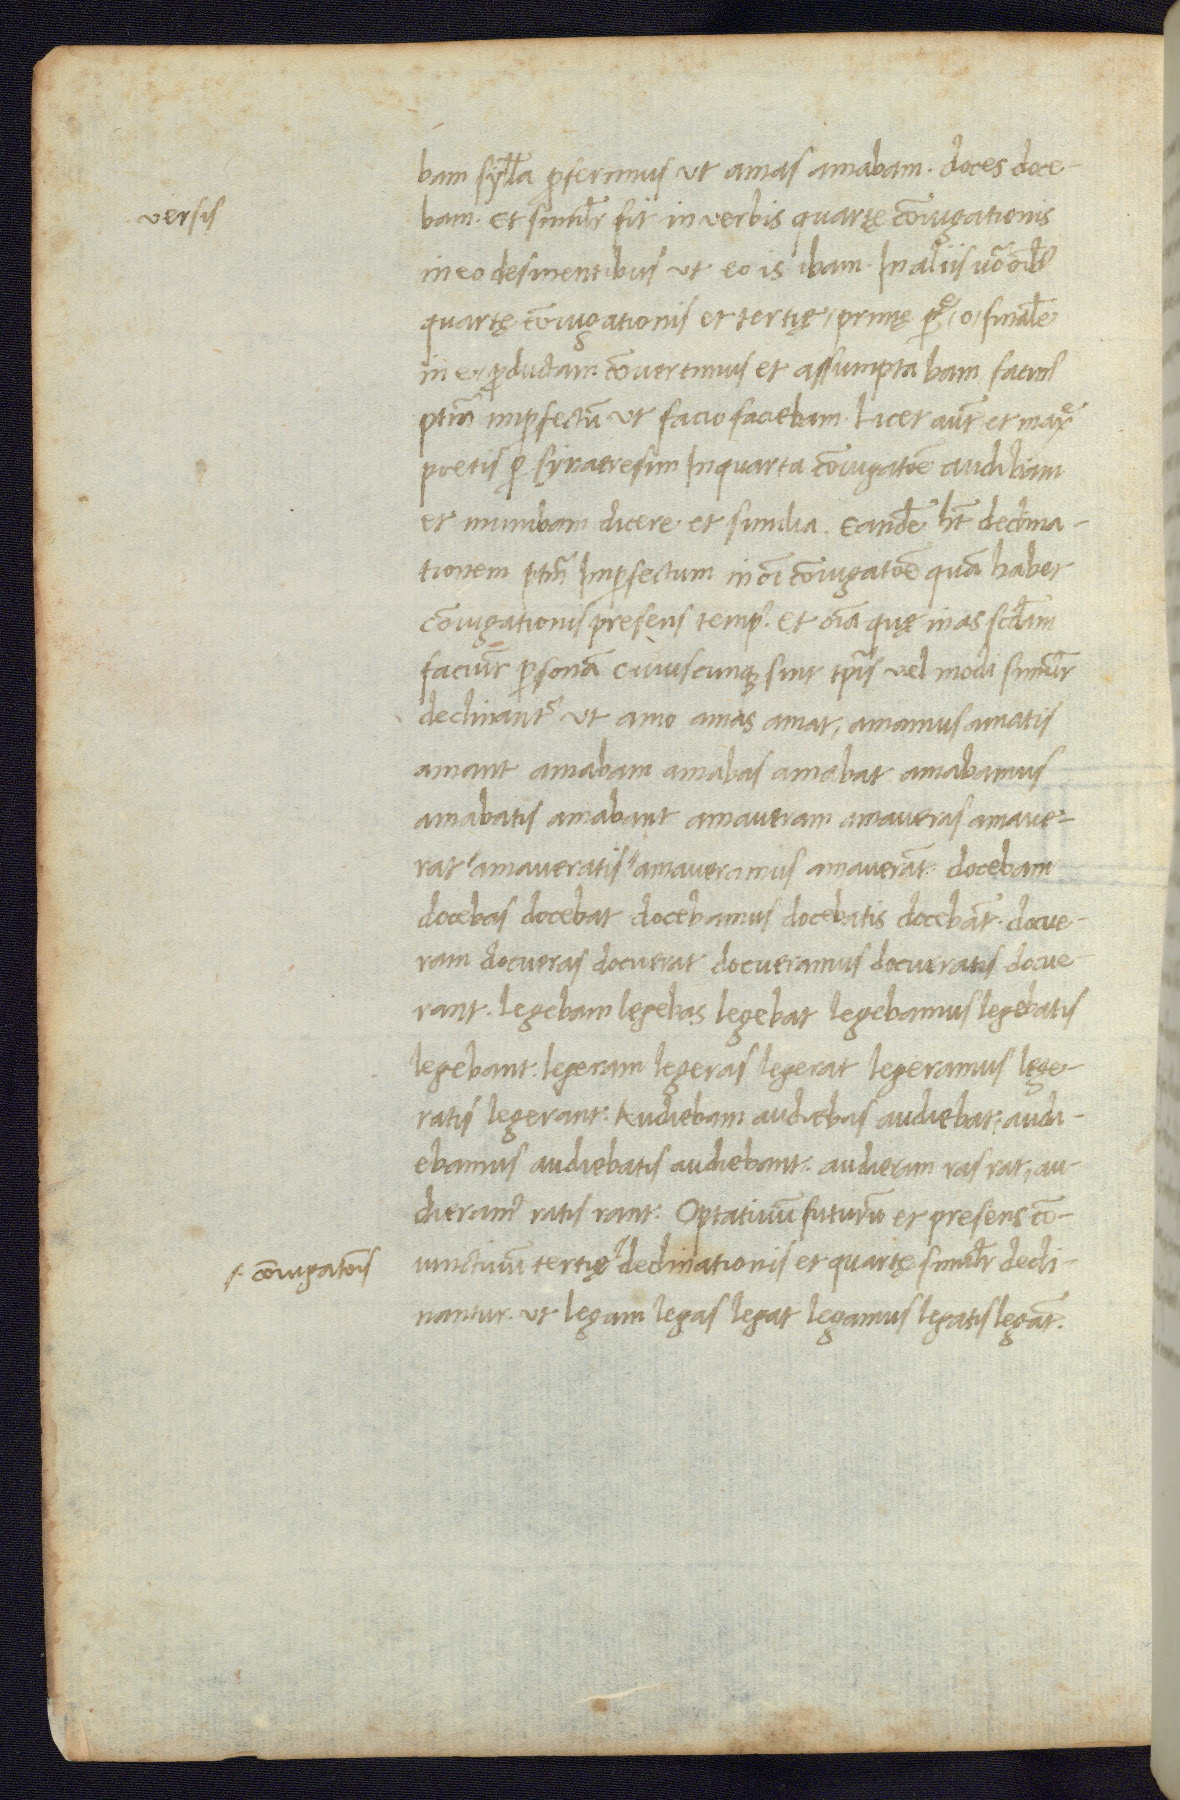 bam syll̄a p̄ferimus ut amas amabam. doces doce-
versis
bam. Et simil̄r fit in verbis quartę cōiugationis
in eo desinentibus ut eo is ibam. In aliis uō oīb
quartę cōiugationis et tertię, primę p̱, o, final̄e
in e, p̄ductam cōvertimus et assumpta bam facim⁹
p̄tm̄ imp̱fectū ut facio faciebam. Licet aut̄ et max̄e
poetis p̱ synaeresim In quarta cōiugatōe audibam
et munibam dicere et similia. Eandē hn̄t declina-
tionem p̄tm̄ Imp̱fectum in oī cōiugatōe quā habet
cōiugationis presens temp⁹. Et oīa quę in as scd̄am
faciūt p̱sonā cuiuscunq; sint tp̄is vel modi simil̄r
declinant̄ ut amo amas amat, amamus amatis
amant amabam amabas amabat amabamus
amabatis amabant amaveram amaveras amave-
rat amaveratis amaveramus amaverāt. docebam
docebas docebat docebamus docebatis docebāt. docue-
ram docueras docuerat docueramus docueratis docue-
rant. legebam legebas legebat legebamus legebatis
legebant. legeram legeras legerat legeramus lege-
ratis legerant. Audiebam audiebas audiebat, audi-
ebamus audiebatis audiebant. audieram ras rat, au-
dieram⁹ ratis rant. Optativū futurū et presens cō-
iunctivū tertię declinationis et quartę simil̄r decli-
/. cōiugatōis
nantur. ut legam legas legat legamus legatis legāt.